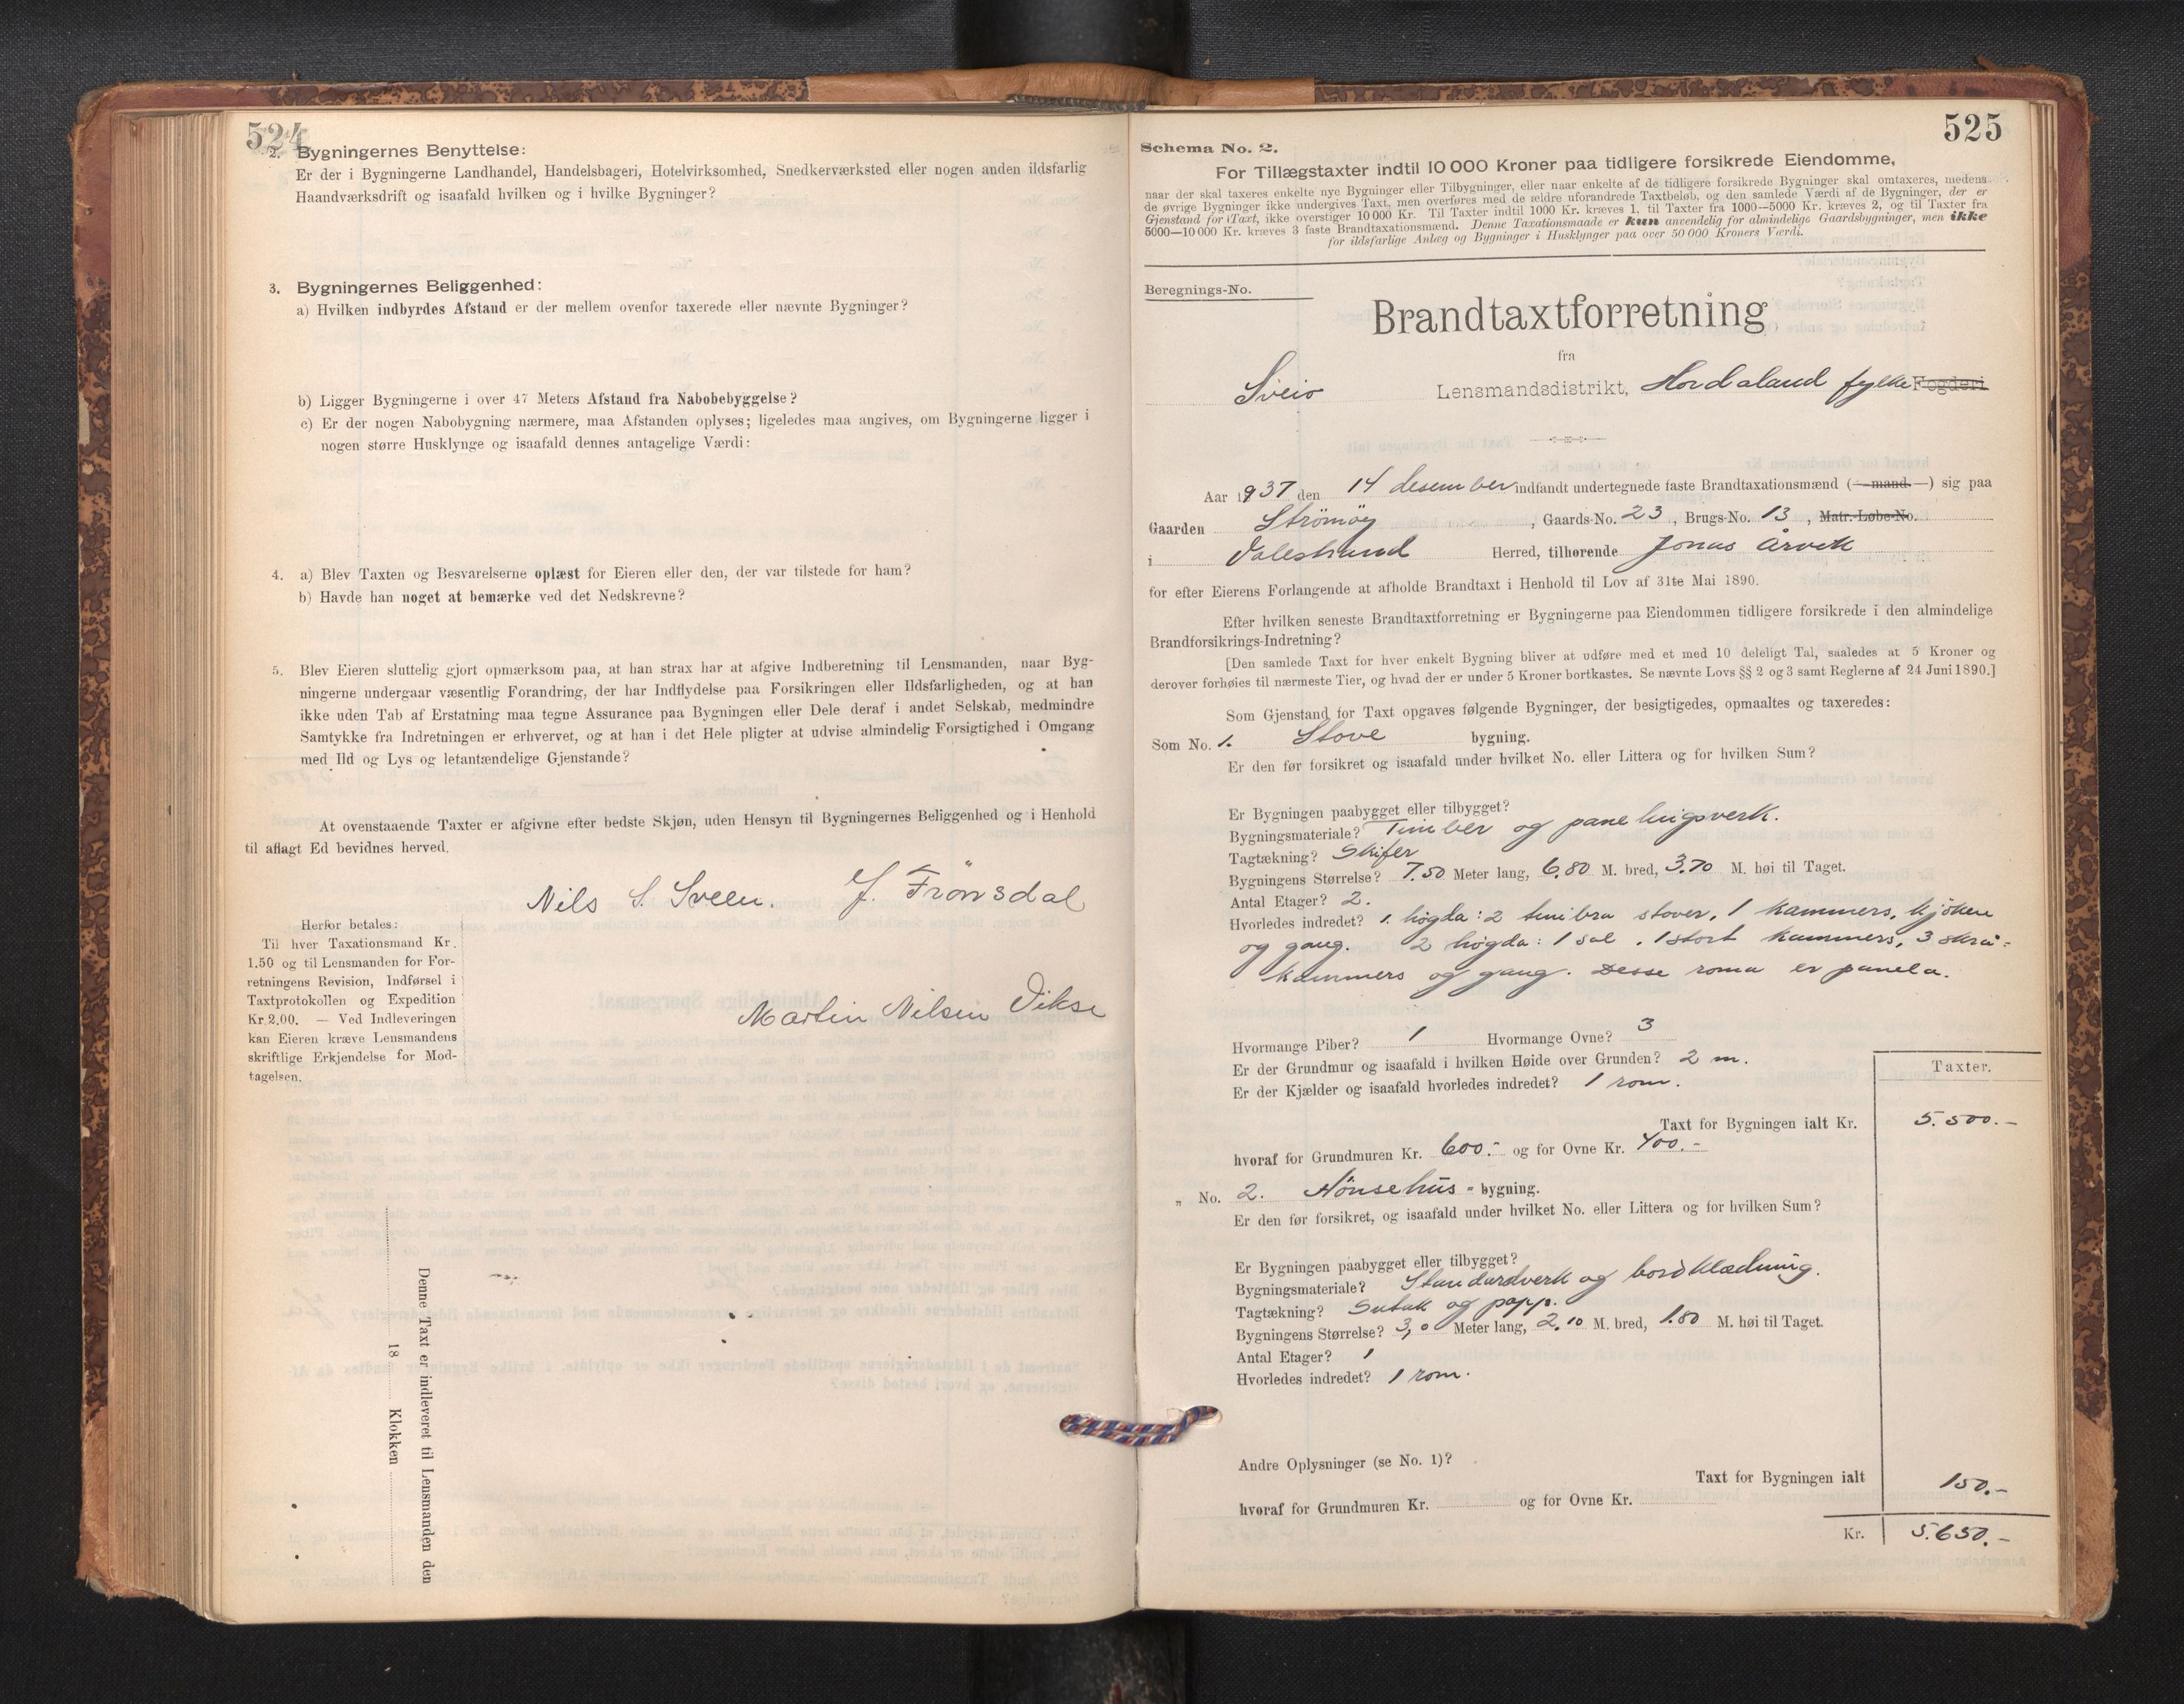 524
2. Bygningernes Benyttelse:
Er der i Bygningerne Landhandel, Handelsbageri, Hotelvirksomhed, Snedkerværksted eller nogen anden ildsfarlig
Haandværksdrift og isaafald hvilken og i hvilke Bygninger?
3. Bygningernes Beliggenhed:
a) Hvilken indbyrdes Afstand er der mellem ovenfor taxerede eller nævnte Bygninger?
b) Ligger Bygningerne i over 47 Meters Afstand fra Nabobebyggelse?
c) Er der nogen Nabobygning nærmere, maa Afstanden oplyses; ligeledes maa angives, om Bygningerne ligger i
nogen større Husklynge og isaafald dennes antagelige Værdi:
4. a) Blev Taxten og Besvarelserne oplæst for Eieren eller den, der var tilstede for ham?
b) Havde han noget at bemærke ved det Nedskrevne?
5. Blev Eieren sluttelig gjort opmærksom paa, at han strax har at afgive Indberetning til Lensmanden, naar Byg-
ningerne undergaar væsentlig Forandring, der har Indflydelse paa Forsikringen eller Ildsfarligheden, og at han
ikke uden Tab af Erstatning maa tegne Assurance paa Bygningen eller Dele deraf i andet Selskab, medmindre
Samtykke fra Indretningen er erhvervet, og at han i det Hele pligter at udvise almindelig Forsigtighed i Omgang
med Ild og Lys og letantændelige Gjenstande?
At ovenstaaende Taxter er afgivne efter bedste Skjøn, uden Hensyn til Bygningernes Beliggenhed og i Henhold
til aflagt Ed bevidnes herved.
Nils S. Sveen. J. Frønsdal
Martin Nilsen Vikse
Herfor betales:
Til hver Taxationsmand Kr.
1.50 og til Lensmanden for For-
retningens Revision, Indførsel i
Taxtprotokollen og Expedition
Kr. 2.00. — Ved Indleveringen
kan Eieren kræve Lensmandens
skriftlige Erkjendelse for Mod-
tagelsen.
Denne Taxt er indleveret til Lensmanden den
18 Klokken
525
Schema No. 2.
For Tillægstaxter indtil 10 000 Kroner paa tidligere forsikrede Eiendomme,
naar der skal taxeres enkelte nye Bygninger eller Tilbygninger, eller naar enkelte af de tidligere forsikrede Bygninger skal omtaxeres, medens
de øvrige Bygninger ikke undergives Taxt, men overføres med de ældre uforandrede Taxtbeløb, og den samlede Værdi af de Bygninger, der er
Gjenstand for Taxt, ikke overstiger 10 000 Kr. Til Taxter indtil 1000 Kr. kræves 1, til Taxter fra 1000—5000 Kr. kræves 2, og til Taxter fra
5000—10 000 Kr. kræves 3 faste Brandtaxationsmænd. Denne Taxationsmaade er kun anvendelig for almindelige Gaardsbygninger, men ikke
for ildsfarlige Anlæg og Bygninger i Husklynger paa over 50 000 Kroners Værdi.
Beregnings-No.
Brandtaxtforretning
fra
Sveio Lensmandsdistrikt, Hordaland fylke Fogderi
Aar 1937 den 14 desember indfandt undertegnede faste Brandtaxationsmænd (—mand—) sig paa
Gaarden Strömöy, Gaards-No. 23, Brugs-No. 13, Matr.-Løbe-No.
i Valestrand Herred, tilhørende Jonas Årvik
for efter Eierens Forlangende at afholde Brandtaxt i Henhold til Lov af 31te Mai 1890.
Efter hvilken seneste Brandtaxtforretning er Bygningerne paa Eiendommen tidligere forsikrede i den almindelige
Brandforsikrings-Indretning?
[Den samlede Taxt for hver enkelt Bygning bliver at udføre med et med 10 deleligt Tal, saaledes at 5 Kroner og
derover forhøies til nærmeste Tier, og hvad der er under 5 Kroner bortkastes. Se nævnte Lovs §§ 2 og 3 samt Reglerne af 24 Juni 1890.]
Som Gjenstand for Taxt opgaves følgende Bygninger, der besigtigedes, opmaaltes og taxeredes:
Som No. 1. Stove bygning.
Er den før forsikret og isaafald under hvilket No. eller Littera og for hvilken Sum?
Er Bygningen paabygget eller tilbygget?
Bygningsmateriale? Timber og panelingsverk.
Tagtækning? Skifer
Bygningens Størrelse? 7.50 Meter lang, 6.80 M. bred, 3.70 M. høi til Taget.
Antal Etager? 2.
Hvorledes indredet? 1. högda: 2 timbra stover, 1 kammers, kjöken
og gang. 2 högda: 1 sal, 1 stort kammers, 3 skrå-
kammers og gang. Desse roma er panela.
Hvormange Piber? 1 Hvormange Ovne? 3
Er der Grundmur og isaafald i hvilken Høide over Grunden? 2 m.
Er der Kjælder og isaafald hvorledes indredet? 1 rom.
Taxter.
Taxt for Bygningen ialt Kr. 5.500.-
hvoraf for Grundmuren Kr. 600.- og for Ovne Kr. 400.-
„ No. 2. Hönsehus - bygning.
Er den før forsikret, og isaafald under hvilket No. eller Littera og for hvilken Sum?
Er Bygningen paabygget eller tilbygget?
Bygningsmateriale? Standardverk og bordklædning.
Tagtækning? Sutak og papp.
Bygningens Størrelse? 3,0 Meter lang, 2.10 M. bred, 1.80 M. høi til Taget.
Antal Etager? 1
Hvorledes indredet? 1 rom.
Andre Oplysninger (se No. 1)?
Taxt for Bygningen ialt 150.-
hvoraf for Grundmuren Kr. og for Ovne Kr.
Kr. 5.650.-